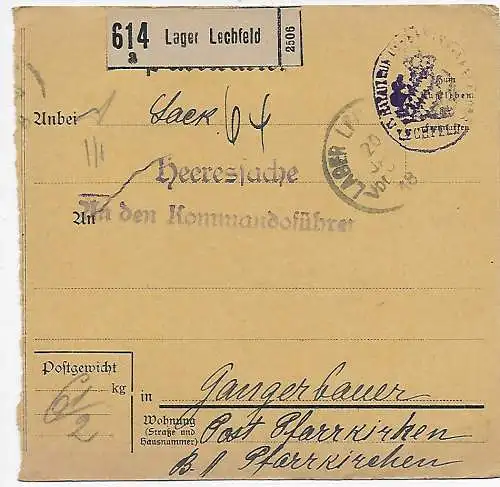 614 Lager Lechfeld
a
2506
Anbei Sack 64
1/1
Zum
Aufkleben
LECHFELD
LAGER
20
Vor
18
Heeressache
An An den Kommandoführer
Postgewicht
kg
6 1/2
in Gangerbauer
Wohnung
(Straße und
Hausnummer)
Post Pfarrkirchen
B. A. Pfarrkirchen